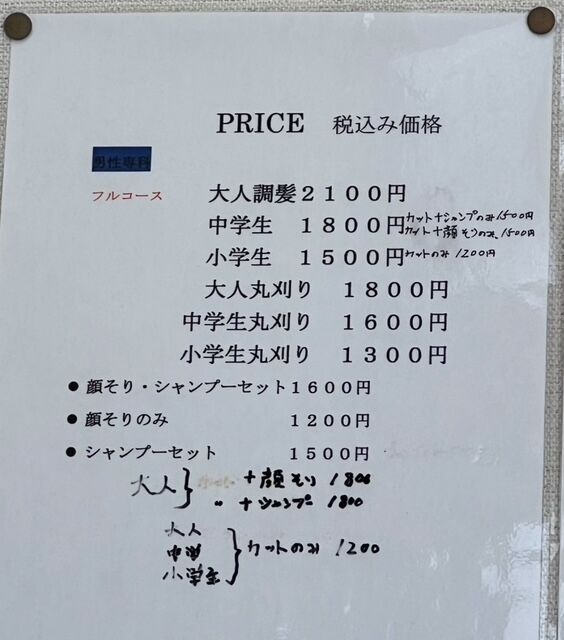 PRICE 税込み価格
男性専科
フルコース 大人調髪2100円
中学生 1800円 カット+シャンプのみ1500円
カット+顔そりのみ、1500円
小学生 1500円 カットのみ1200円
大人丸刈り 1800円
中学生丸刈り 1600円
小学生丸刈り 1300円
● 顔そり・シャンプーセット1600円
● 顔そりのみ 1200円
● シャンプーセット 1500円
大人 } +顔そり 1800
〃 +シャンプ 1800
大人
中学
小学生 } カットのみ 1200